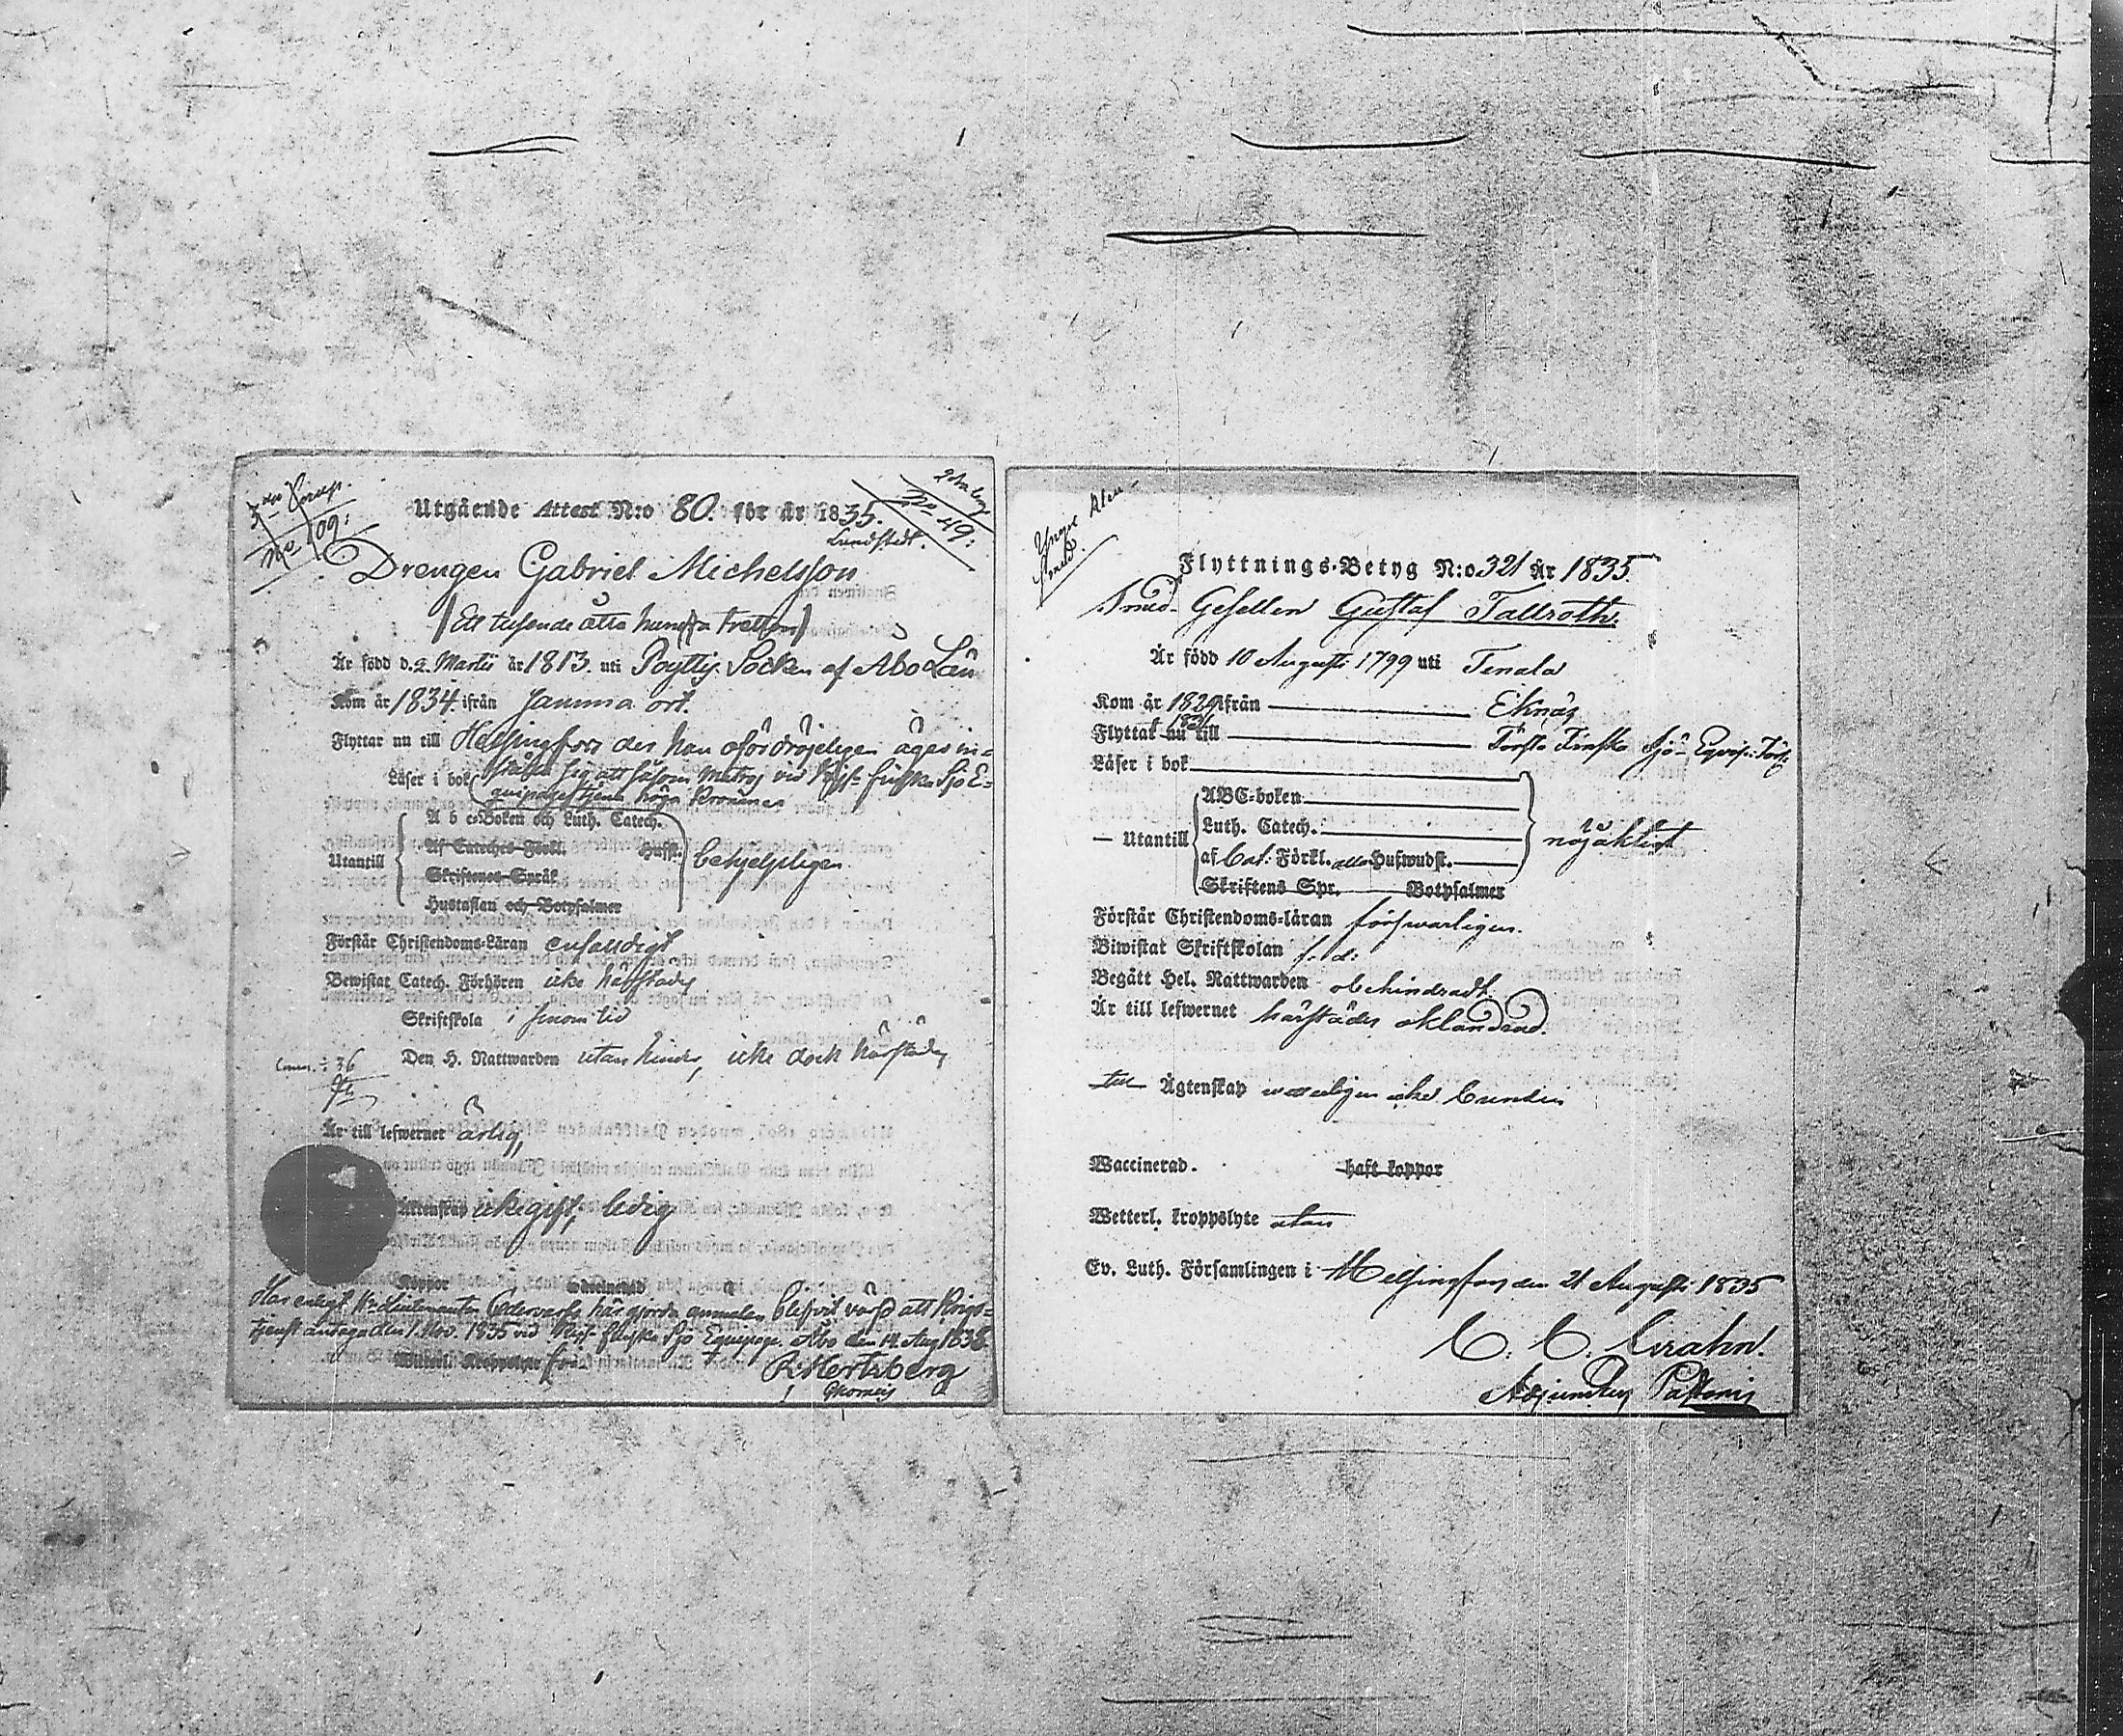 Utgående Attest N:o 80. för år 1835.
No 49:
Lundstedt.
No 109:
Drengen Gabriel Michelsson
(Ett tusende åtta hundra tretton)
Är född d. 2 Martii år 1813. uti Pöyttis Socken af Åbo Län
Kom år 1834. ifrån samma ort.
Flyttar nu till Helsingfors der han ofördröjeligen äger in-
ställa sig att såsom Matros vid Kejs. finska Sjö E-
quipaget tjena höga Kronan
Läser i bok
A b c-Boken och Luth. Catech.
Af Cateches Förkl. Husst.
Utantill
Skriftenes Språk
Hustaflan och Botpsalmer
behjelpligen
Förstår Christendoms-Läran enfaldigt
Bewistat Catech. Förhören icke härstädes
Skriftskola i sinom tid
Comm. : 36
Den H. Nattwarden utan hinder, icke dock härstädes
Är till lefwernet ärlig,
Ägtenskap icke gift, ledig
Koppor waccinerad
Har enligt Hr Lieutenanten Cedervarfs här gjorda anmälan blifvit värfd att Krigs-
tjenst antaga den 1. Nov. 1835 vid Kejs. finska Sjö Equipage. Åbo den 14. Aug 1835.
Witterl. Kroppslyte fri
R: Hertzberg
Flyttnings-Betyg N:o 321 År 1835.
Smed-Gesellen Gustaf Tallroth.
Är född 10 Augusti 1799 uti Tenala
Kom år 1829 ifrån Eknäs
Flyttat nu 1831 till Första Finska Sjö-Eqvip:
Läser i bok
ABC-boken
Luth. Catech.
Utantill
af Cat: Förkl. alla Hufwudst.
Skriftens Spr. Botpsalmer
nöjaktigt
Förstår Christendoms-läran försvarligen.
Biwistat Skriftskolan f. d:
Begått Hel. Nattwarden obehindradt
Är till lefwernet härstädes oklandrad.
till Ägtenskap vetterligen icke bunden
Waccinerad. haft koppor
Wetterl. kroppslyte utan
Ev. Luth. Församlingen i Helsingfors den 21 Augusti 1835
C. C. Crahn.
Adjunctus Pastoris